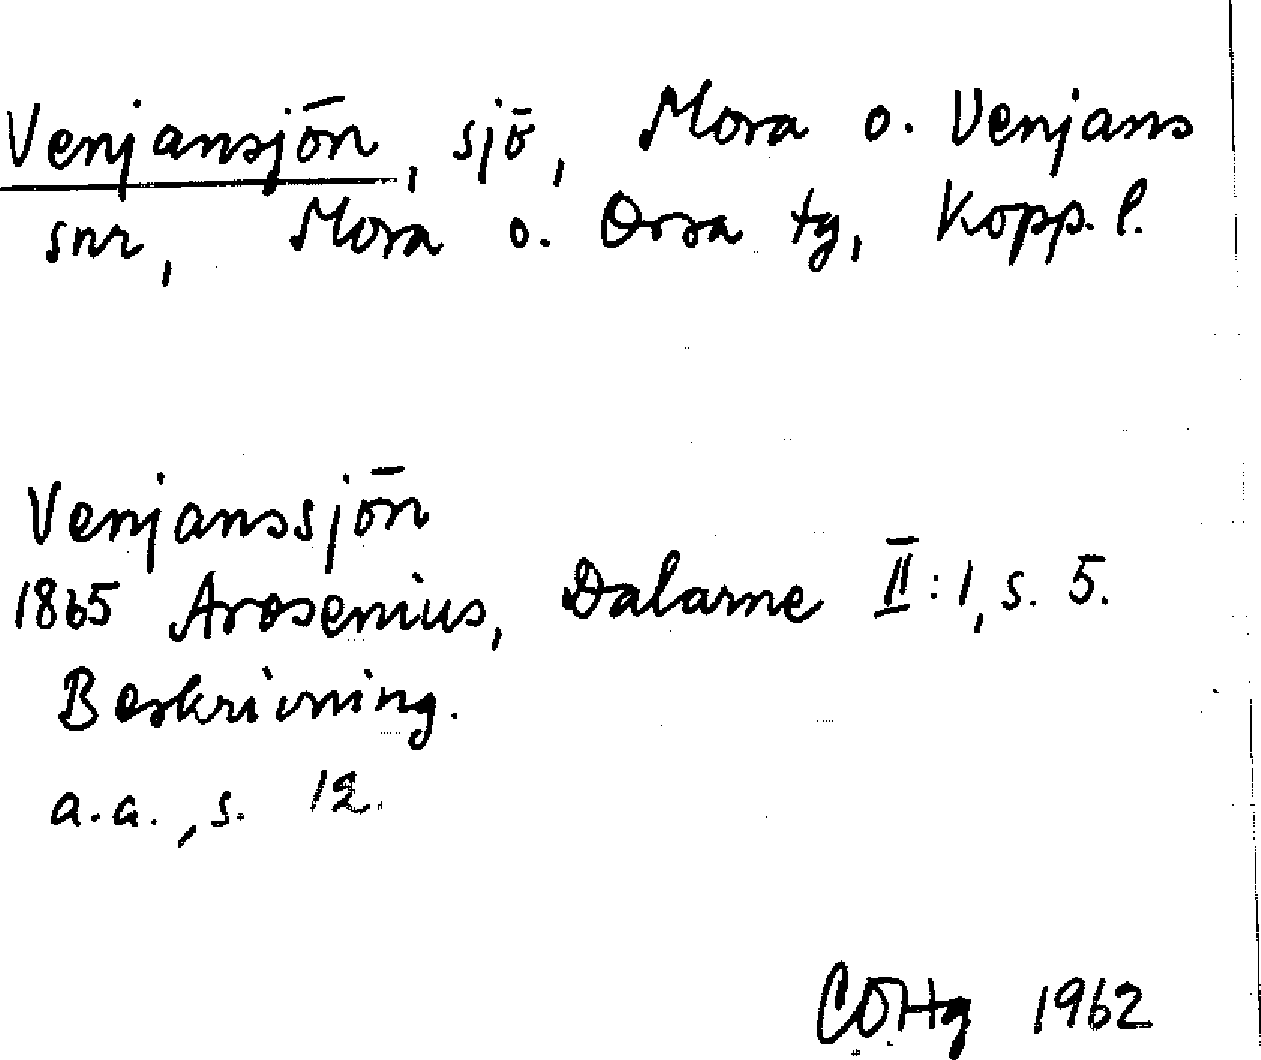 Venjansjön, sjö, Mora o. Venjans
snr, Mora o. Orsa tg, Kopp. l.
Venjanssjön
1865 Arosenius, Dalarne II:1, s. 5.
Beskrivning.
a.a., s. 12.
CÖHg 1962